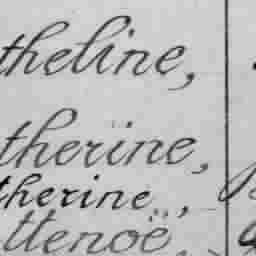 theline,
therine,
therine,
ttenoë,